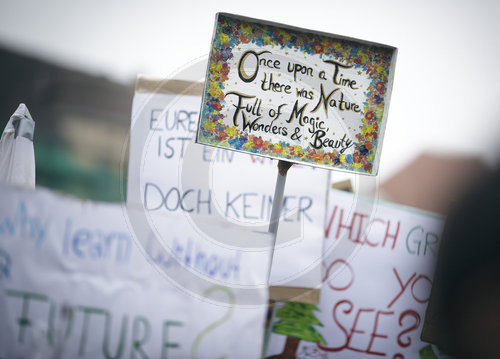 Once upon a Time
there was Nature
Full of Magic,
Wonders & Beauty
EURE
IST EIN
DOCH KEINER
Why learn without
FUTURE?
WHICH
DO YOU
SEE?